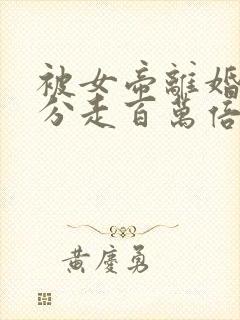 被女帝離婚
分走百萬倍
黃慶勇